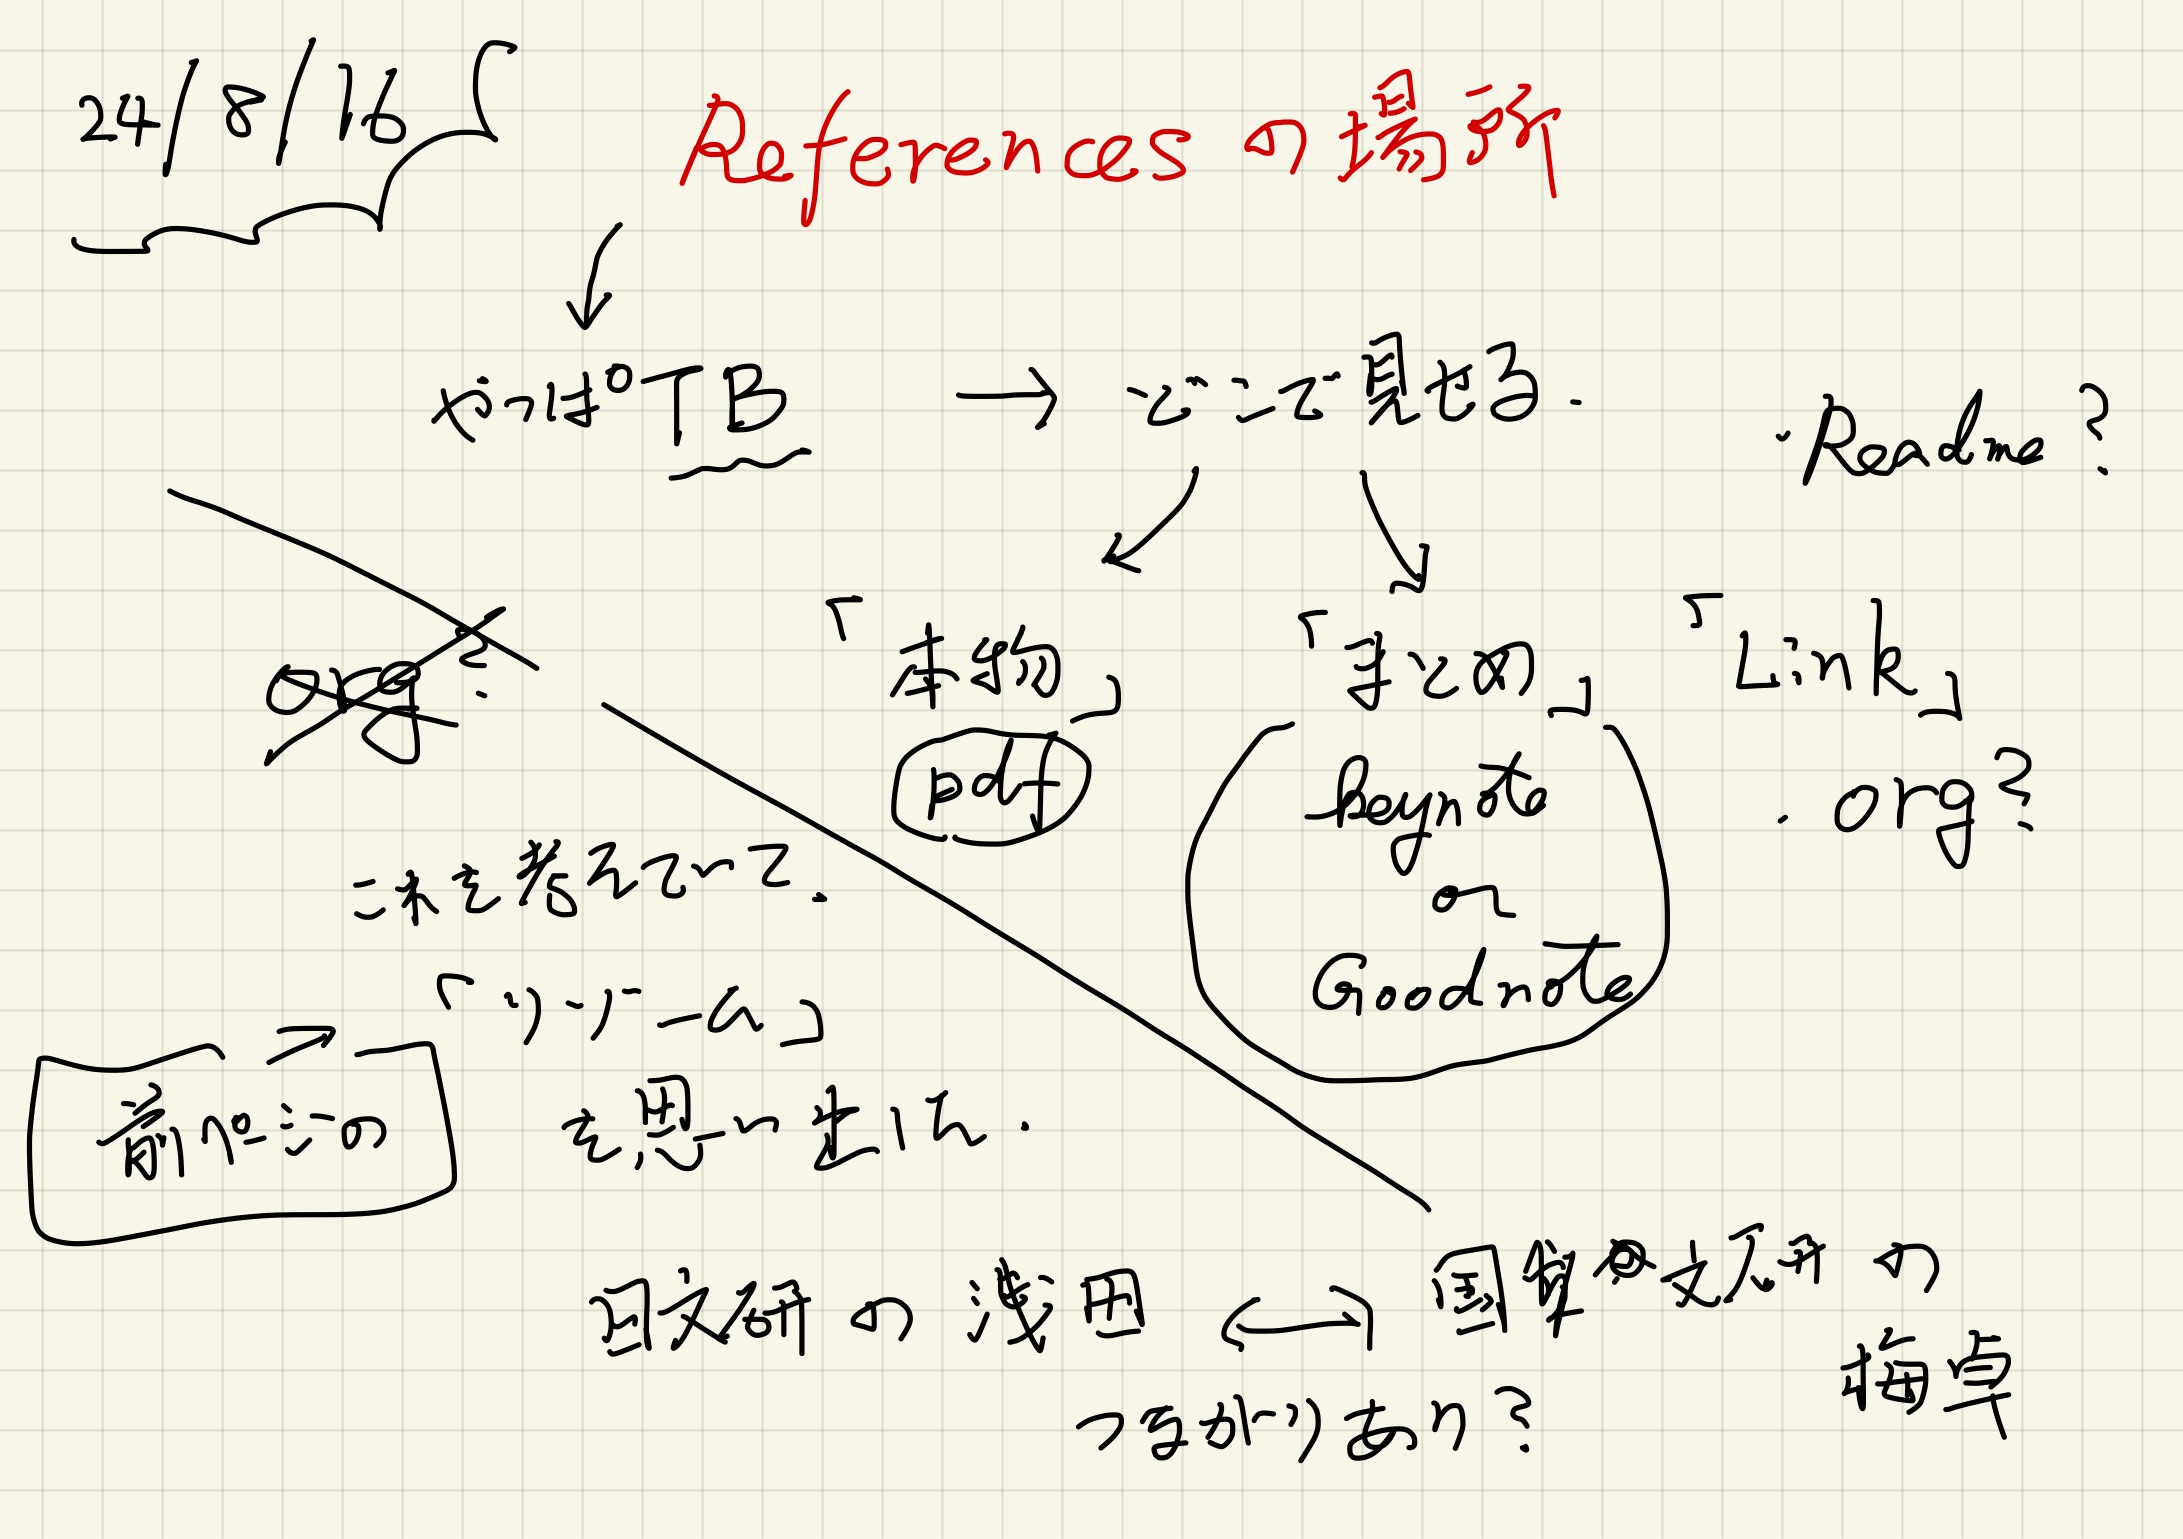 24/8/16
Referencesの場所
やっぱTB → どこで見せる.
・Readme?
org?
「本物」
「まとめ」
「Link」
pdf
keynote
or
Goodnote
・org?
これを考えていて.
「リバーム」
前ページの
を思い出した.
日文研の浅田 ←→ 国 文研の
梅卓
つながりあり?